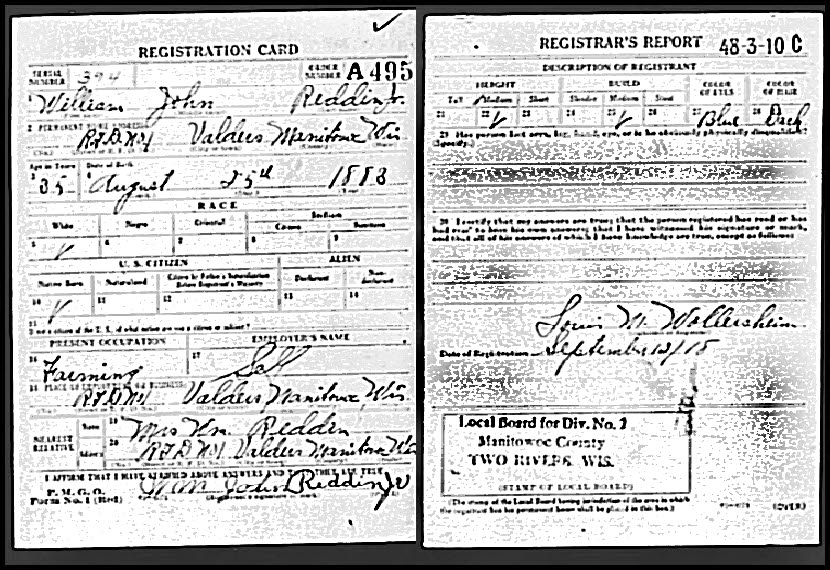 REGISTRATION CARD
SERIAL NUMBER 394 ORDER NUMBER A495
1 William John Reddin Jr.
2 PERMANENT HOME ADDRESS
R.F.D. No 1 Valders Manitowoc Wis.
Age in Years Date of Birth
35 August 25th 1883
RACE
White Negro Oriental Indian
Citizen Noncitizen
5 ✓ 6 7 8 9
U. S. CITIZEN ALIEN
Native Born Naturalized Citizen by Father's Naturalization Before Registrant's Majority Declarant Non-declarant
10 ✓ 11 12 13 14
15 If not a citizen of the U. S., of what nation are you a citizen or subject?
PRESENT OCCUPATION EMPLOYER'S NAME
16 Farming 17 Self
18 PLACE OF EMPLOYMENT OR BUSINESS
R.F.D. No 1 Valders Manitowoc Wis.
NEAREST RELATIVE Name 19 Mrs Wm. Reddin
20 R.F.D. No 1 Valders Manitowoc Wis
I AFFIRM THAT I HAVE VERIFIED ABOVE ANSWERS AND THAT THEY ARE TRUE
P. M. G. O.
Form No. 1 (Red) Wm John Reddin Jr
REGISTRAR'S REPORT 48-3-10 C
DESCRIPTION OF REGISTRANT
HEIGHT BUILD COLOR OF EYES COLOR OF HAIR
Tall Medium Short Slender Medium Stout
21 22 ✓ 23 24 25 ✓ 26 27 Blue 28 Dark
29 Has person lost arm, leg, hand, eye, or is he obviously physically disqualified?
(Specify.)
30 I certify that my answers are true; that the person registered has read or has
had read to him his own answers; that I have witnessed his signature or mark,
and that all of his answers of which I have knowledge are true, except as follows:
Louis M. Wollersheim
Date of Registration September 12/18
Local Board for Div. No. 2
Manitowoc County
TWO RIVERS, WIS.
(STAMP OF LOCAL BOARD)
(The stamp of the Local Board having jurisdiction of the area in which
the registrant has his permanent home shall be placed in this box.)
(OVER)